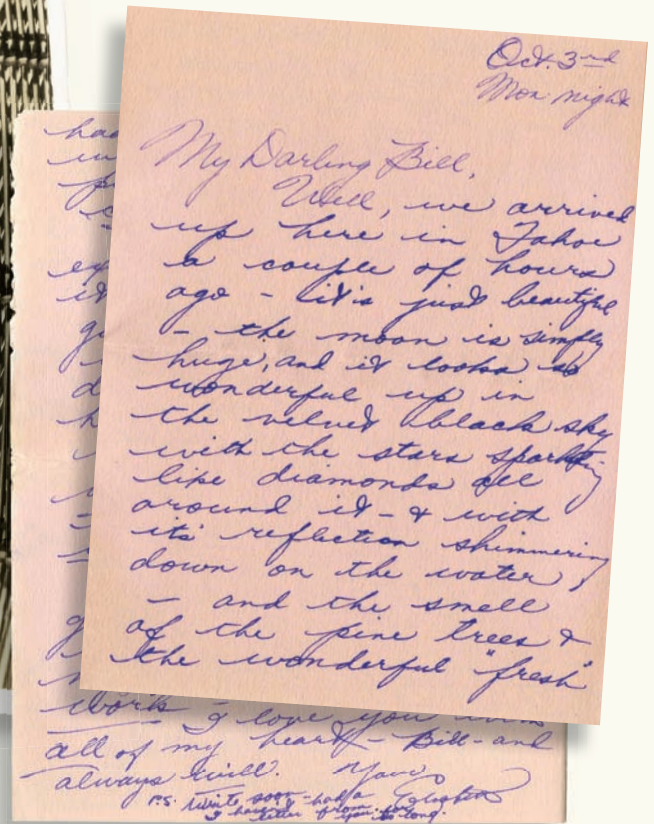 Oct. 3rd
Mon night
My Darling Bill,
Well, we arrived
up here in Tahoe
a couple of hours
ago - it's just beautiful
- the moon is simply
huge, and it looks so
wonderful up in
the velvet black sky
with the stars sparkling
like diamonds all
around it - & with
its' reflection shimmering
down on the water,
- and the smell
of the pine trees &
the wonderful "fresh"
had
work - I love you with
all of my heart - Bill - and
always will.
Yours,
P.S. Write soon - had a
letter from you
long.